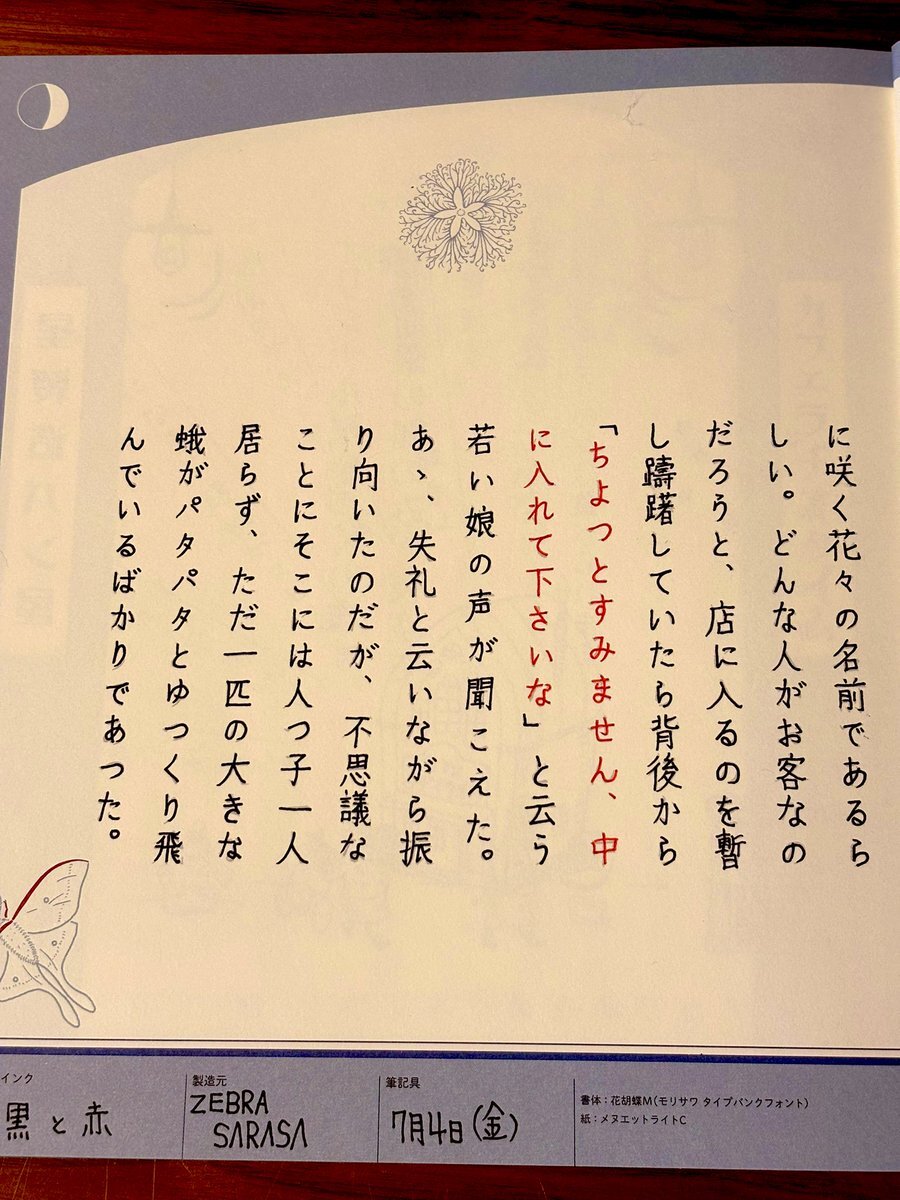 に咲く花々の名前であるら
しい。どんな人がお客なの
だろうと、店に入るのを暫
し躊躇していたら背後から
「ちよつとすみません、中
に入れて下さいな」と云う
若い娘の声が聞こえた。
あゝ、失礼と云いながら振
り向いたのだが、不思議な
ことにそこには人つ子一人
居らず、ただ一匹の大きな
蛾がパタパタとゆつくり飛
んでいるばかりであつた。
インク
黒と赤
製造元
ZEBRA
SARASA
筆記具
7月4日(金)
書体:花胡蝶M(モリサワ タイプバンクフォント)
紙:メヌエットライトC